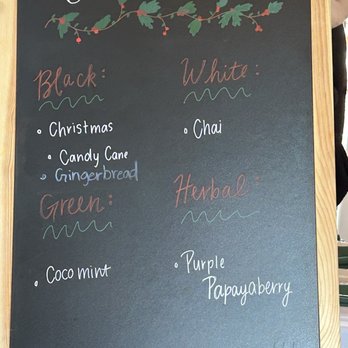 Black:
• Christmas
• Candy Cane
• Gingerbread
White:
• Chai
Green:
• Coco mint
Herbal:
• Purple
Papayaberry